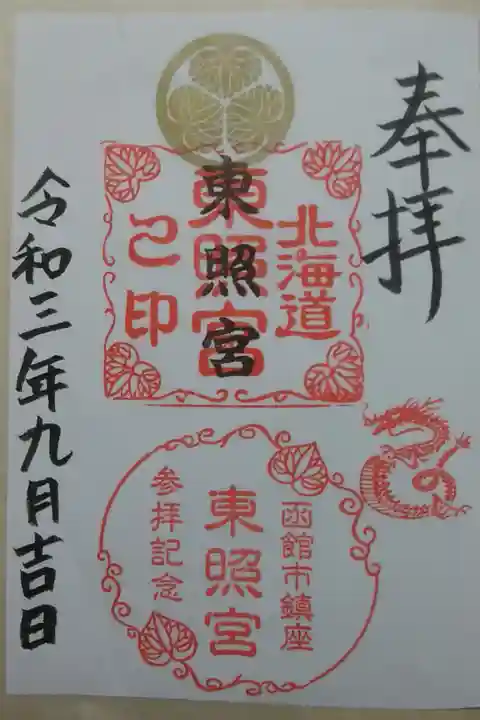 奉拝
北海道
東照宮
之印
東照宮
函館市鎮座
東照宮
参拝記念
令和三年九月吉日